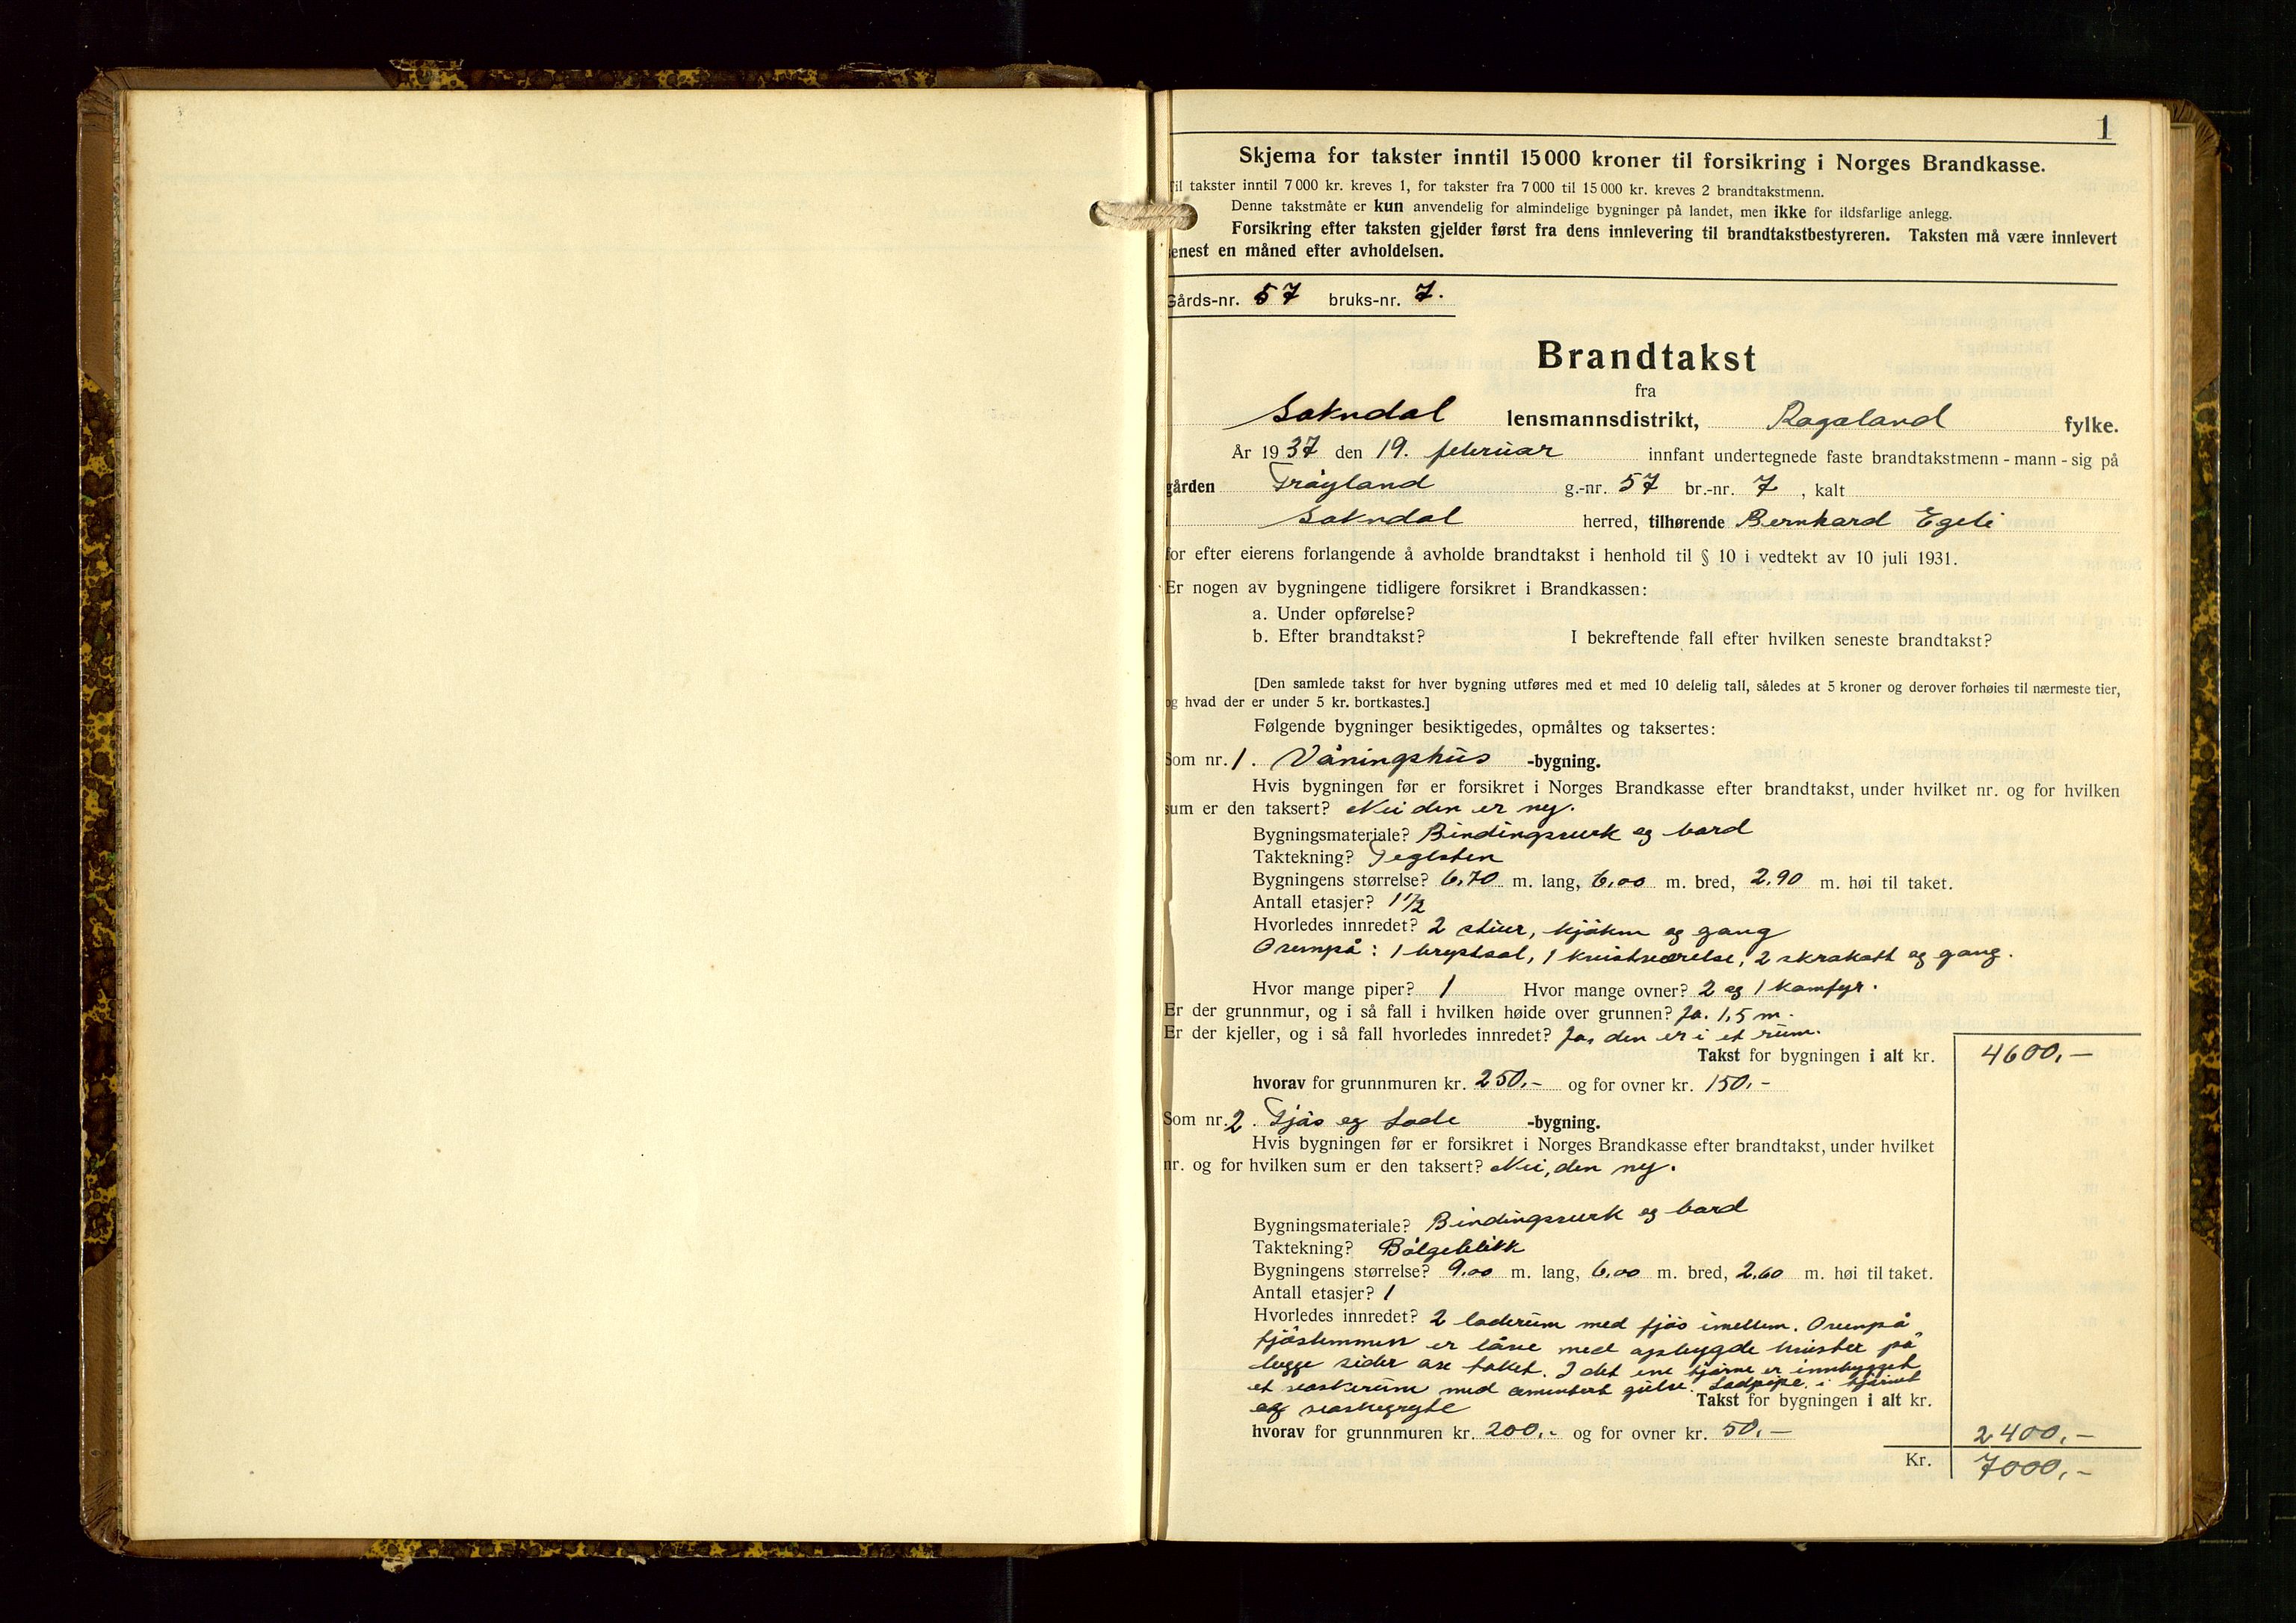 1
Skjema for takster inntil 15 000 kroner til forsikring i Norges Brandkasse.
il takster inntil 7 000 kr. kreves 1, for takster fra 7 000 til 15 000 kr. kreves 2 brandtakstmenn.
Denne takstmåte er kun anvendelig for almindelige bygninger på landet, men ikke for ildsfarlige anlegg.
Forsikring efter taksten gjelder først fra dens innlevering til brandtakstbestyreren. Taksten må være innlevert
enest en måned efter avholdelsen.
Gårds-nr. 57 bruks-nr. 7.
Brandtakst
fra
Sokndal lensmannsdistrikt, Rogaland fylke.
År 1937 den 19. februar innfant undertegnede faste brandtakstmenn - mann - sig på
gården Frøyland g.-nr. 57 br.-nr. 7, kalt
Sokndal herred, tilhørende Bernhard Egeli
for efter eierens forlangende å avholde brandtakst i henhold til § 10 i vedtekt av 10 juli 1931.
Er nogen av bygningene tidligere forsikret i Brandkassen:
a. Under opførelse?
b. Efter brandtakst? I bekreftende fall efter hvilken seneste brandtakst?
[Den samlede takst for hver bygning utføres med et med 10 delelig tall, således at 5 kroner og derover forhøies til nærmeste tier,
og hvad der er under 5 kr. bortkastes.]
Følgende bygninger besiktigedes, opmåltes og taksertes:
Som nr. 1. Våningshus -bygning.
Hvis bygningen før er forsikret i Norges Brandkasse efter brandtakst, under hvilket nr. og for hvilken
sum er den taksert? Nei den er ny.
Bygningsmateriale? Bindingsverk og bord
Taktekning? Teglsten
Bygningens størrelse? 6,70 m. lang, 6,00 m. bred, 2,90 m. høi til taket.
Antall etasjer? 1 1/2
Hvorledes innredet? 2 stuer, kjøken og gang
Ovenpå: 1 brystsal, 1 kvistværelse, 2 skrakott og gang.
Hvor mange piper? 1 Hvor mange ovner? 2 og 1 komfyr.
Er der grunnmur, og i så fall i hvilken høide over grunnen? Ja. 1,5 m.
Er der kjeller, og i så fall hvorledes innredet? Ja, den er i et rum.
Takst for bygningen i alt kr. 4600,-
hvorav for grunnmuren kr. 250,- og for ovner kr. 150,-
Som nr. 2. Fjøs og Lade -bygning.
Hvis bygningen før er forsikret i Norges Brandkasse efter brandtakst, under hvilket
nr. og for hvilken sum er den taksert? Nei, den ny.
Bygningsmateriale? Bindingsverk og bord
Taktekning? Bølgeblikk
Bygningens størrelse? 9,00 m. lang, 6,00 m. bred, 2,60 m. høi til taket.
Antall etasjer? 1
Hvorledes innredet? 2 laderum med fjøs imellem. Ovenpå
fjøslemmen er låve med opbygde kvister på
begge sider av taket. I det ene hjørne er innbygget
et vaskerum med cementert gulv. Ladpipe i hjørnet
og vaskegryte
Takst for bygningen i alt kr.
hvorav for grunnmuren kr. 200,- og for ovner kr. 50,- 2400,-
Kr. 7000,-